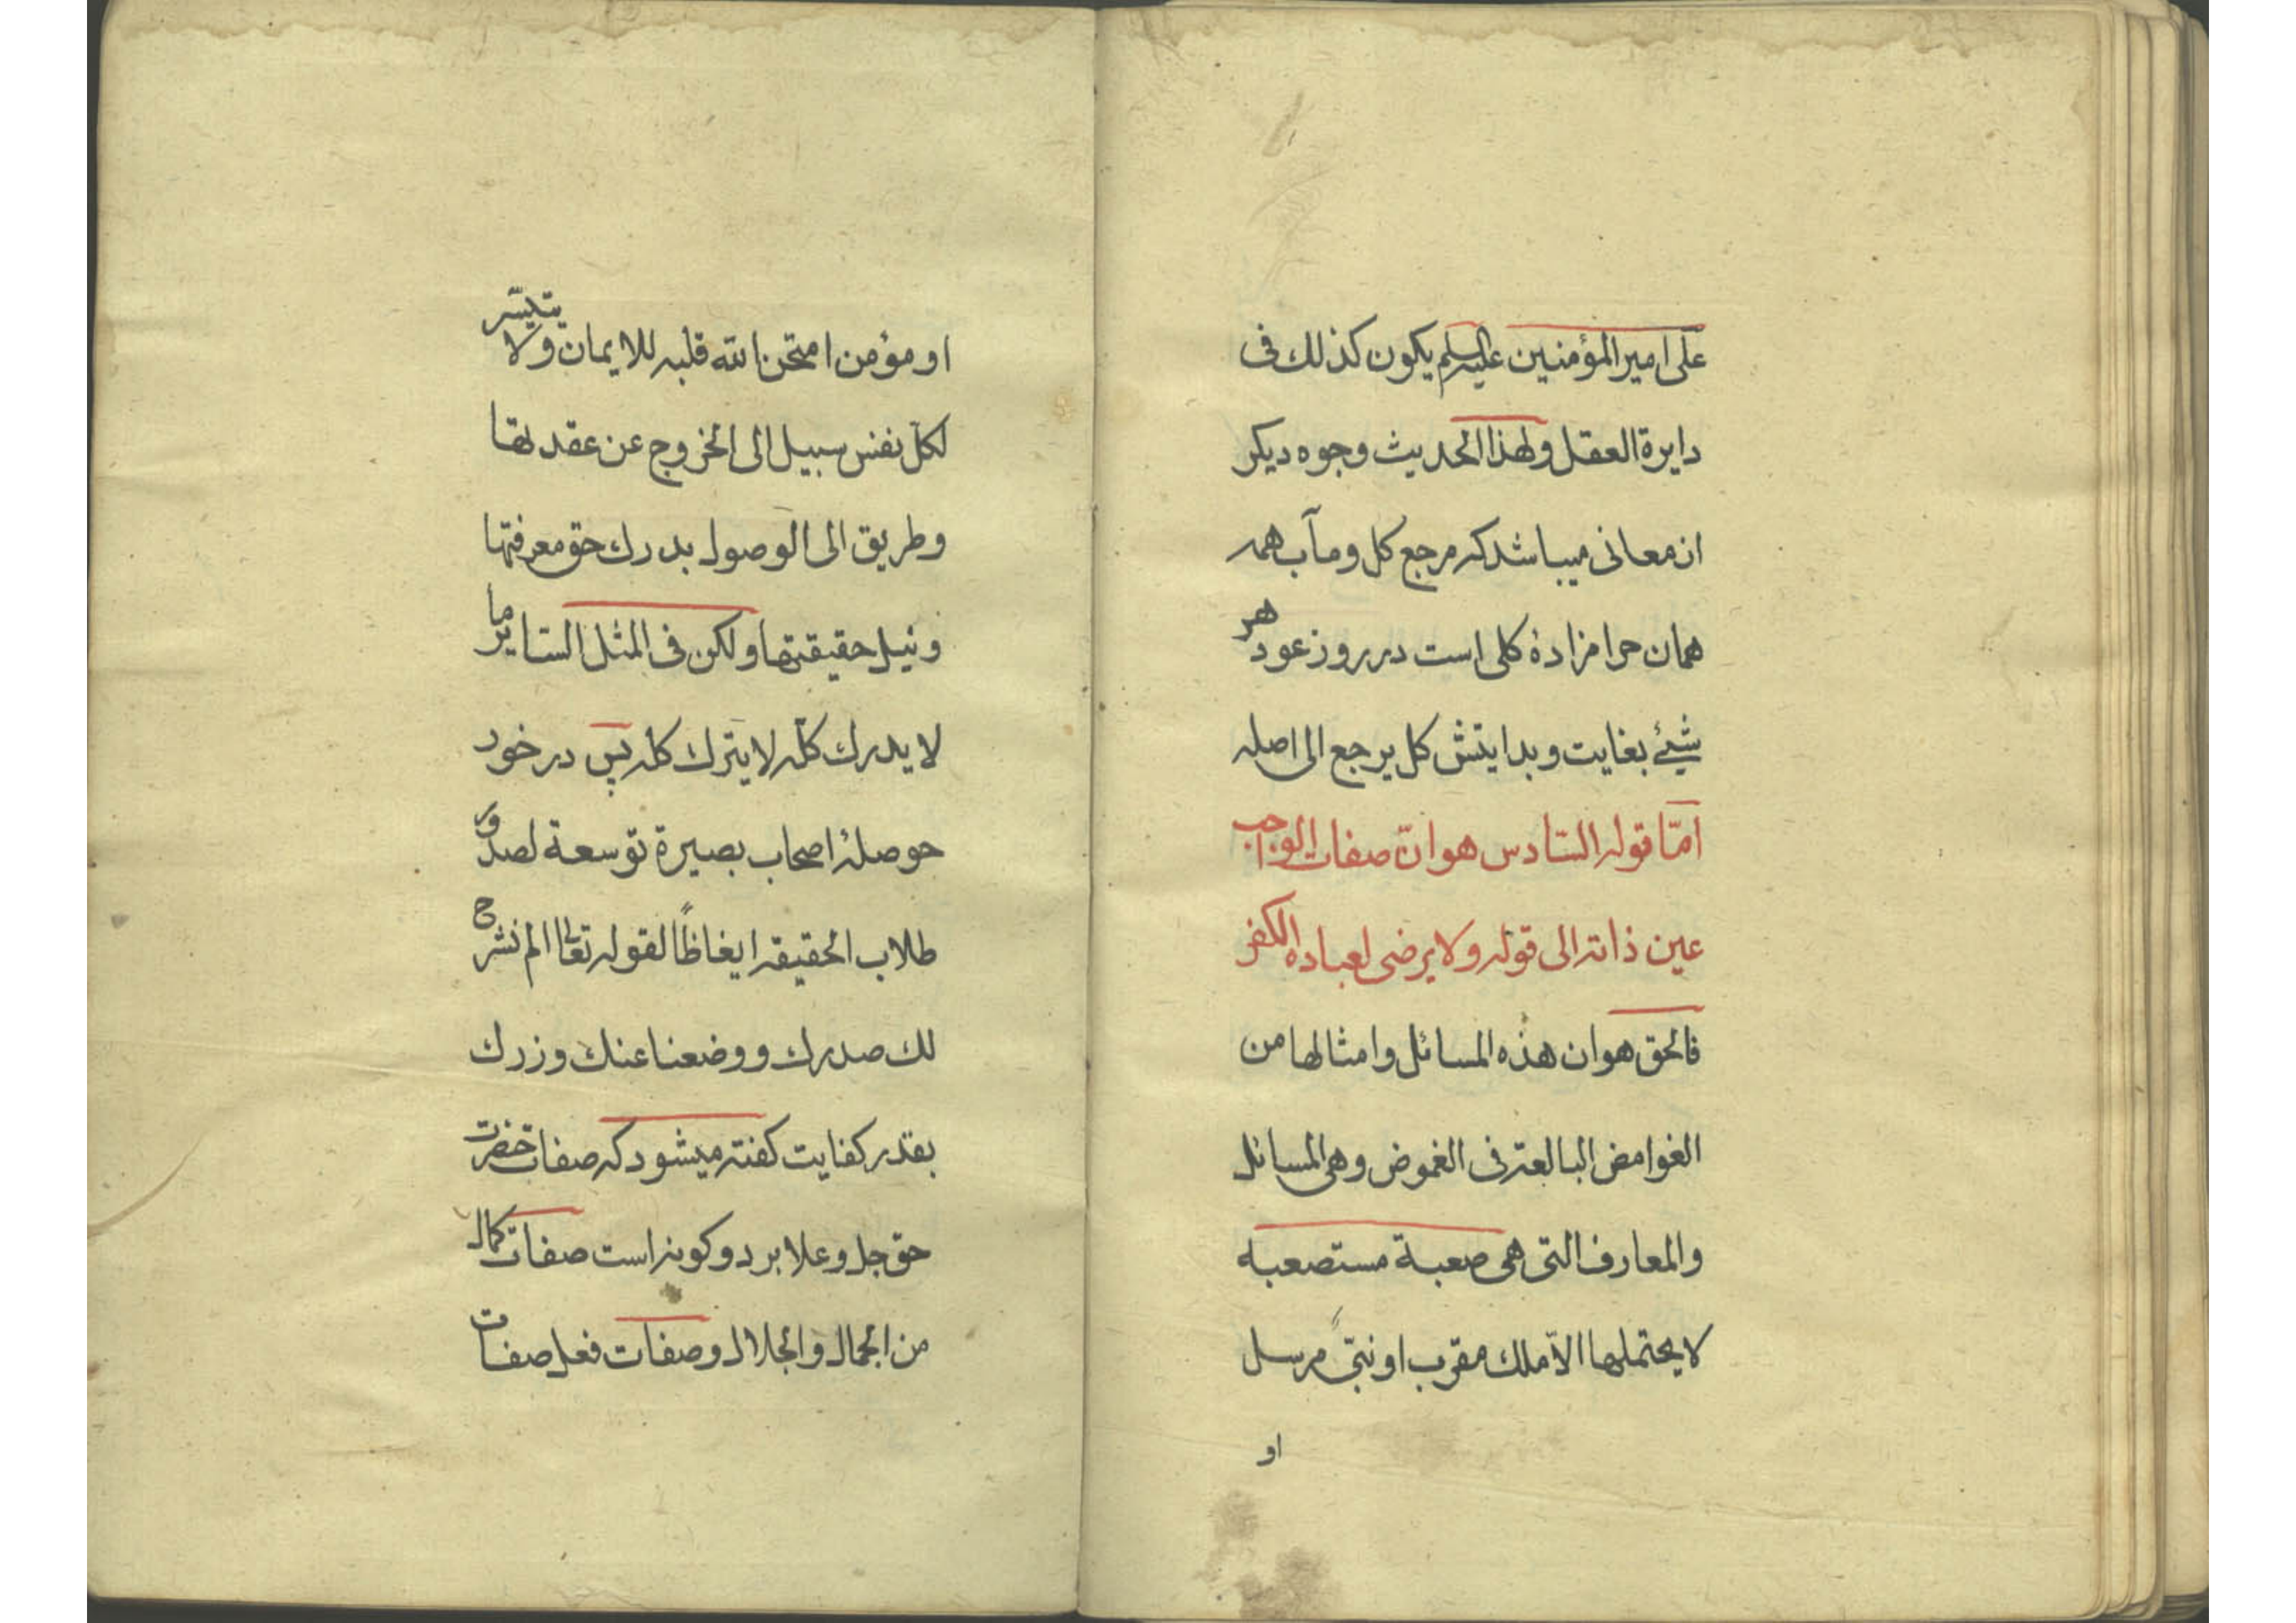 علی امیرالمؤمنین علیه السلم یکون کذلك فی
دایرة العقل ولهذا الحدیث وجوه دیکر
از معانی میباشد که مرجع کل و مآب همه
همان حرامزادهٔ کلی است در روز عود هر
شیئ بغایت و بدایتش کل یرجع الی اصله
امّا قوله السّادس هو انّ صفات الواجب
عین ذاته الی قوله ولا یرضی لعباده الکفر
فالحق هو ان هذه المسائل وامثالها من
الغوامض البالغة فی الغموض وهی المسائل
والمعارف التی هی صعبة مستصعبه
لا یحتملها الاّ ملك مقرب او نبیّ مرسل
او
او مؤمن امتحن الله قلبه للایمان ولا یتیسّر
لکل نفس سبیل الی الخروج عن عقدتها
وطریق الی الوصول بدرك حق معرفتها
ونیل حقیقتها ولکن فی المثل السایر ما
لا یدرك کلّه لا یترك کله پس در خور
حوصلهٔ اصحاب بصیرة توسعة لصدور
طلاب الحقیقه ایغاظاً لقوله تعالی الم نشرح
لك صدرك ووضعنا عنك وزرك
بقدر کفایت کفته میشود که صفات حضرت
حق جل وعلا بر دو کونه است صفات کمال
من الجمال والجلال وصفات فعل صفات